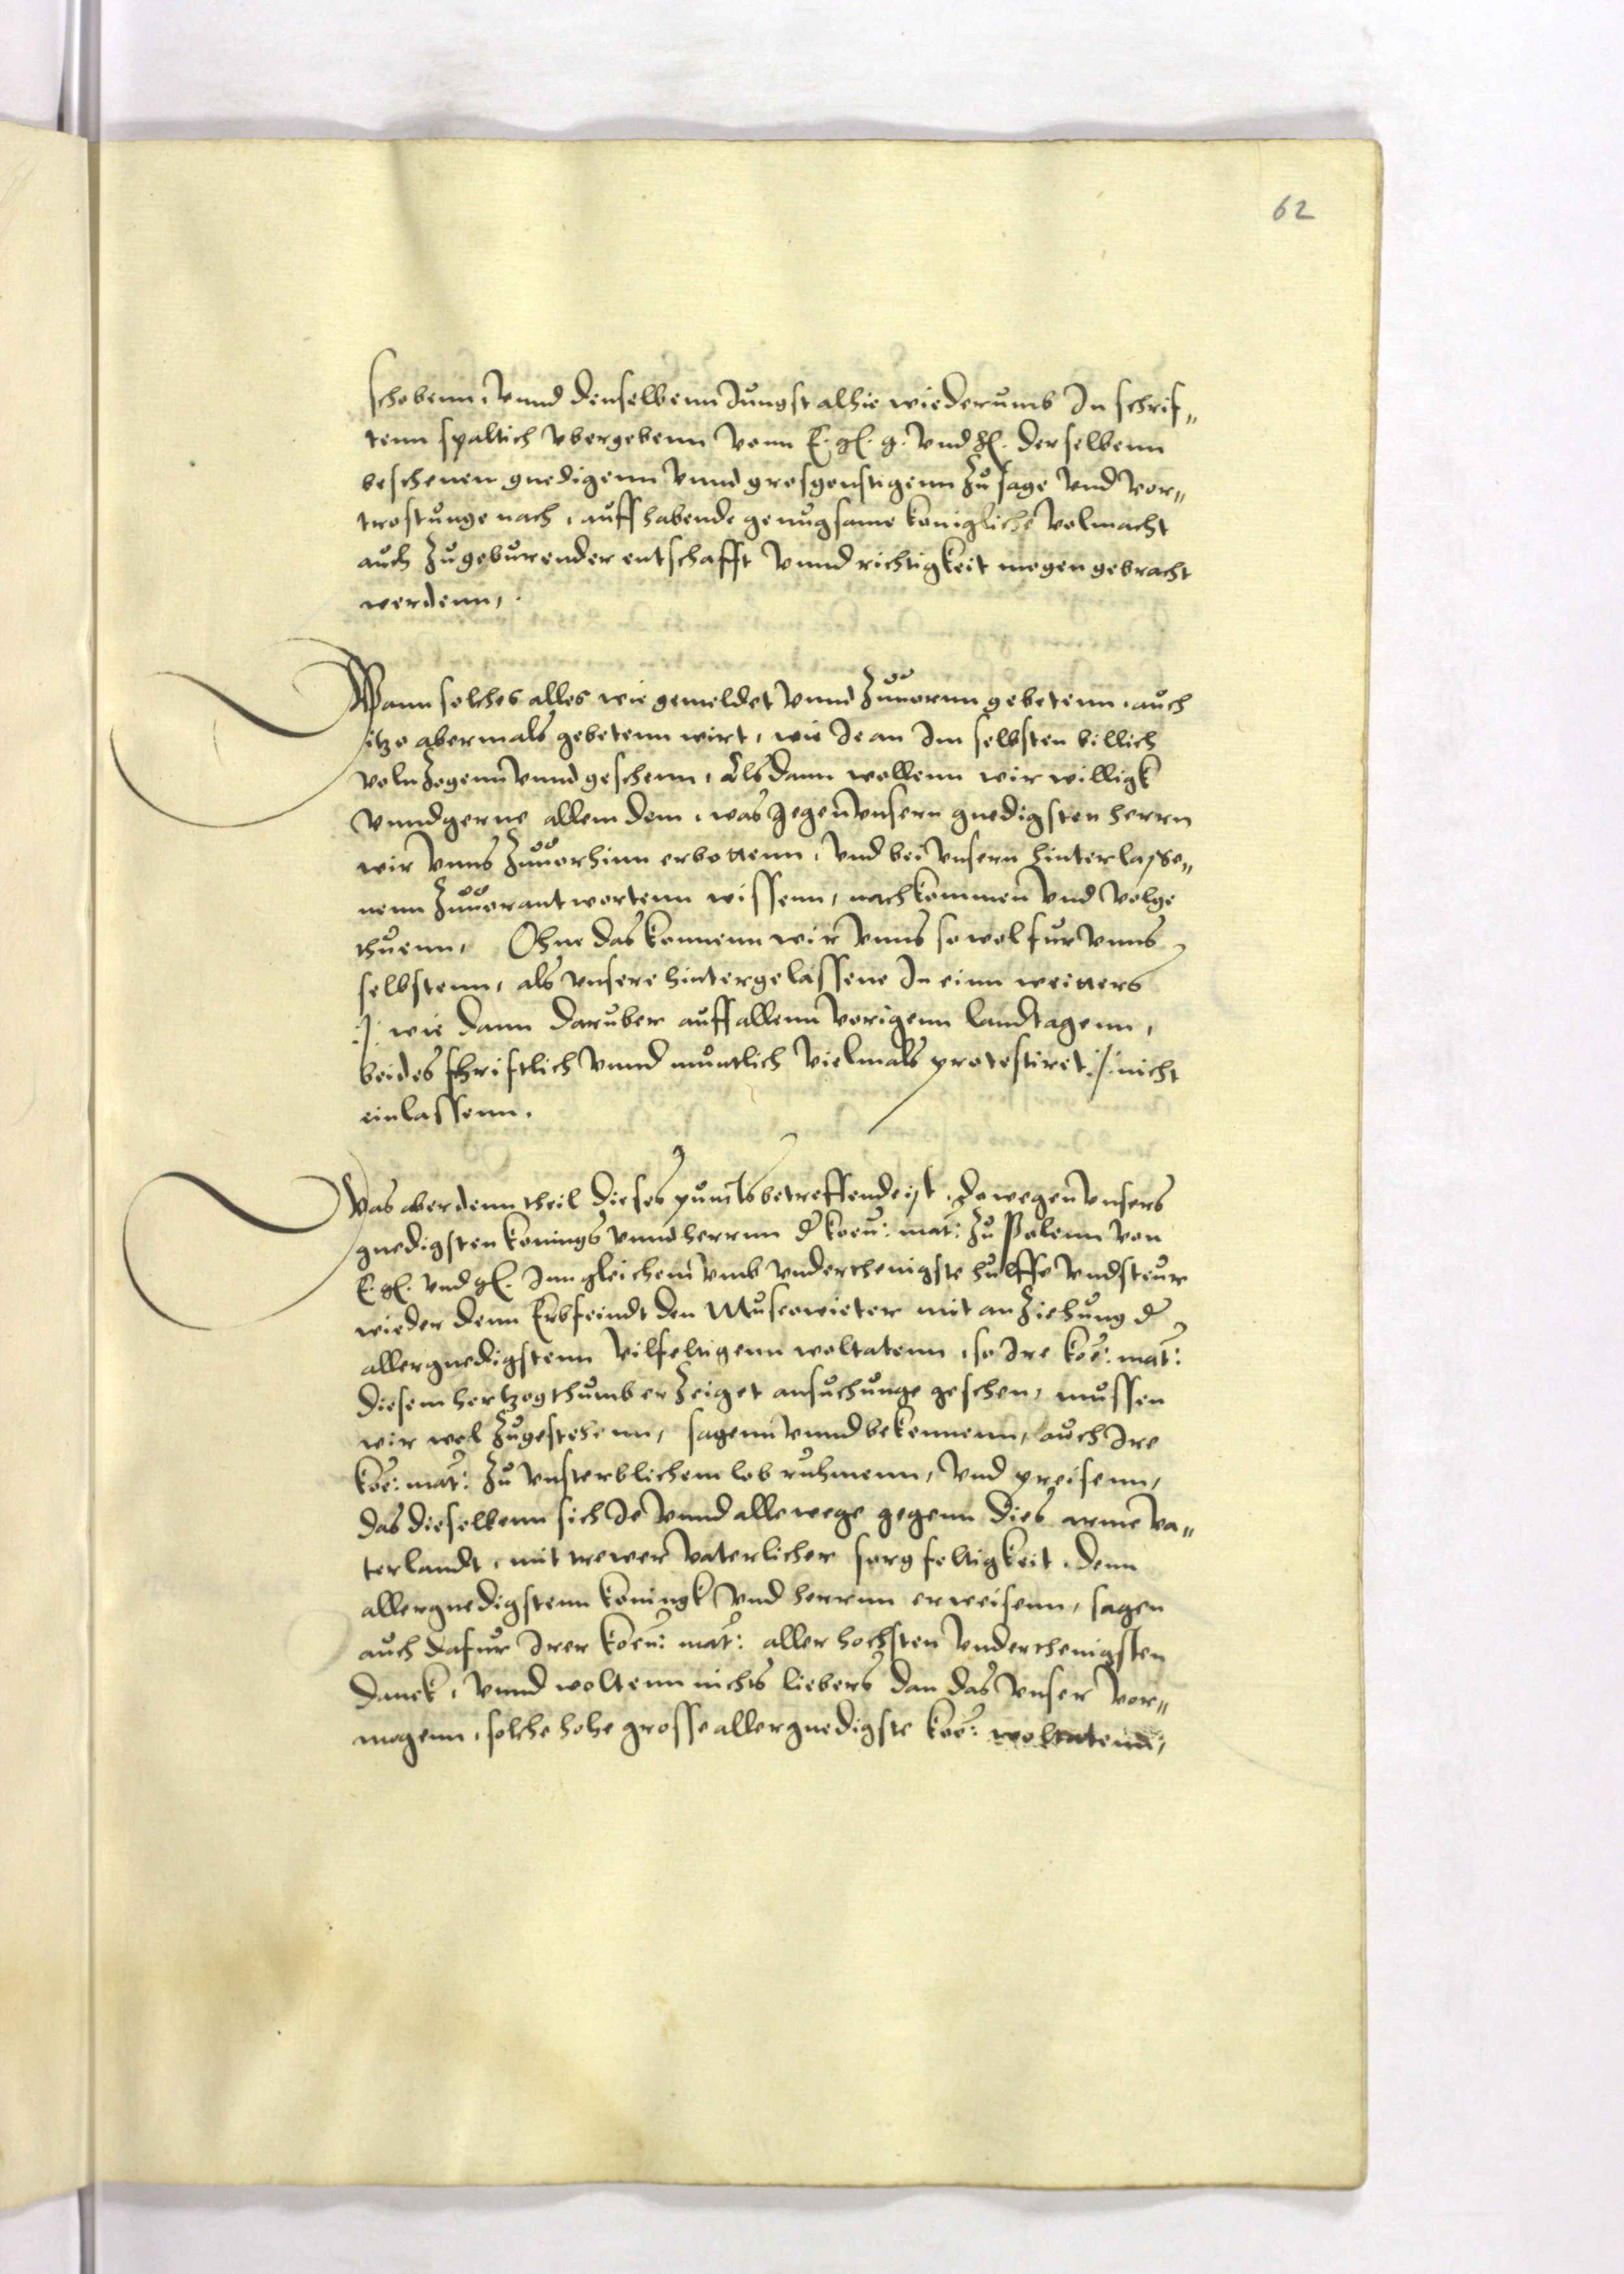 62
schobenn, vnnd denselbenn Jungst alhie wiederumb In schrif„
tenn spaltich vbergebenn vonn E. gl. g. vnd gl. derselbenn
beschenen gnedigenn vnnd grosgonstigenn Zusage vnd vor„
trostunge nach, auff habende genugsame konigliche volmacht
auch Zugeburender entschafft vnnd richtigkeit mogen gebracht
werdenn,
Wann solches alles wie gemeldet vnnd Zuuornn gebetenn, auch
itzo abermals gebetenn wirt, wie Je an Im selbsten billich
volnZogenn vnnd geschenn, Als dann wollenn wir willigk
vnnd gerne allem dem, was gegen vnsern gnedigsten herrn
wir vnns Zuuorhinn erbottenn, vnd bei vnsern hinterlasse„
nenn Zuuorantwortenn wissenn, nachkommen vnd volge
thuenn, Ohne das konnenn wir vnns so wol fur vnns
selbstenn, als vnsere hintergelassene In einn weitters
/: wie dann daruber auff allenn vorigenn landtagenn,
beides schriftlich vnnd muntlich vielmals protestiret :/ nicht
einlassenn.
Was aber denn theil dieses puncts betreffende ist, Do wegen vnsers
gnedigsten konings vnnd herrnn d koen: mat: Zu Polenn von
E. gl. vnd gl. Inn gleichem vmb vnderthenigste hulffe vnd steur
wieder denn Erbfeindt den Muscowieter mit anZiehung d
allergnedigstenn vilfeltigenn woltatenn, so Ire koe: mat:
diesem hertzogthumb erZeiget ansuchunge geschen, mussen
wir wol Zugestehenn, sagenn vnnd bekennenn, auch Ire
koe: mat: Zu vnsterblichem lob ruhmenn, vnd preisenn,
das dieselbenn sich Je vnnd allewege gegenn dies arme va„
terlandt, mit trewer vaterlicher sorgfeltigkeit, denn
allergnedigstenn koningk vnd herrnn erweisenn, sagen
auch dafur Irer koen: mat: aller hochsten vnderthenigsten
danck, vnnd woltenn nichts liebers dan das vnser vor„
mogenn, solche hohe grosse allergnedigste koe: woltatenn,